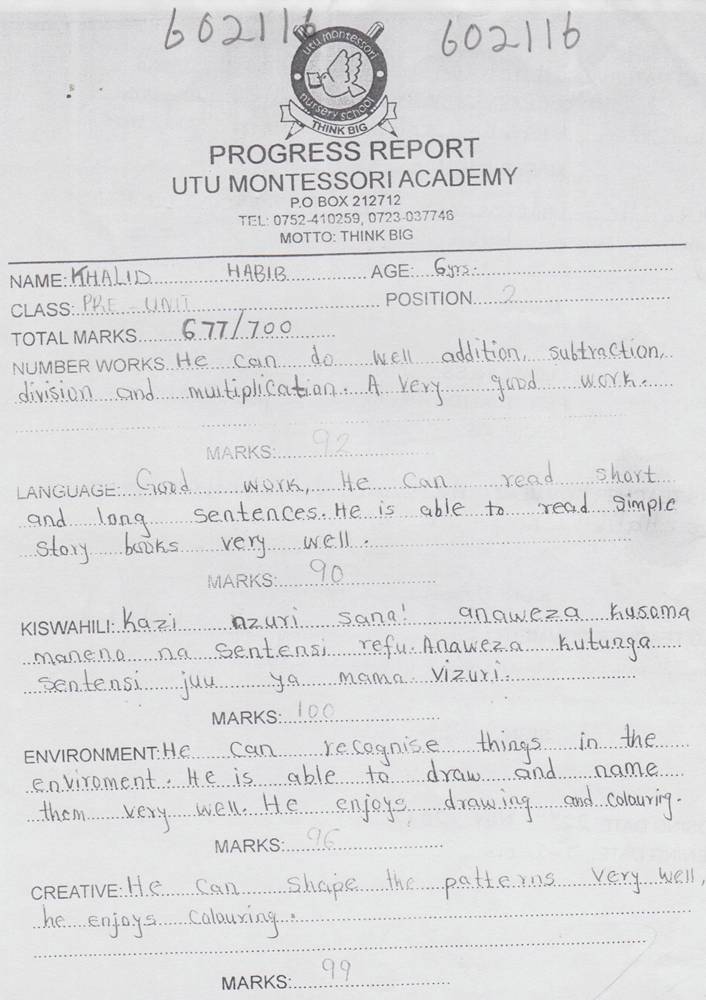 602116
602116
utu montessori
nursery school
THINK BIG
PROGRESS REPORT
UTU MONTESSORI ACADEMY
P.O BOX 212712
TEL: 0752-410259, 0723-037746
MOTTO: THINK BIG
NAME: KHALID HABIB AGE: 6yrs.
CLASS: PRE-UNIT POSITION 2
TOTAL MARKS 677/700
NUMBER WORKS He can do well addition, subtraction,
division and multiplication. A very good work.
MARKS: 92
LANGUAGE: Good work, He can read short
and long sentences. He is able to read simple
story books very well.
MARKS: 90
KISWAHILI: Kazi nzuri sana! anaweza kusoma
maneno na sentensi refu. Anaweza kutunga
sentensi juu ya mama vizuri.
MARKS: 100
ENVIRONMENT: He can recognise things in the
enviroment. He is able to draw and name
them very well. He enjoys drawing and colouring.
MARKS: 96
CREATIVE: He can shape the patterns very well,
he enjoys colouring.
MARKS: 99